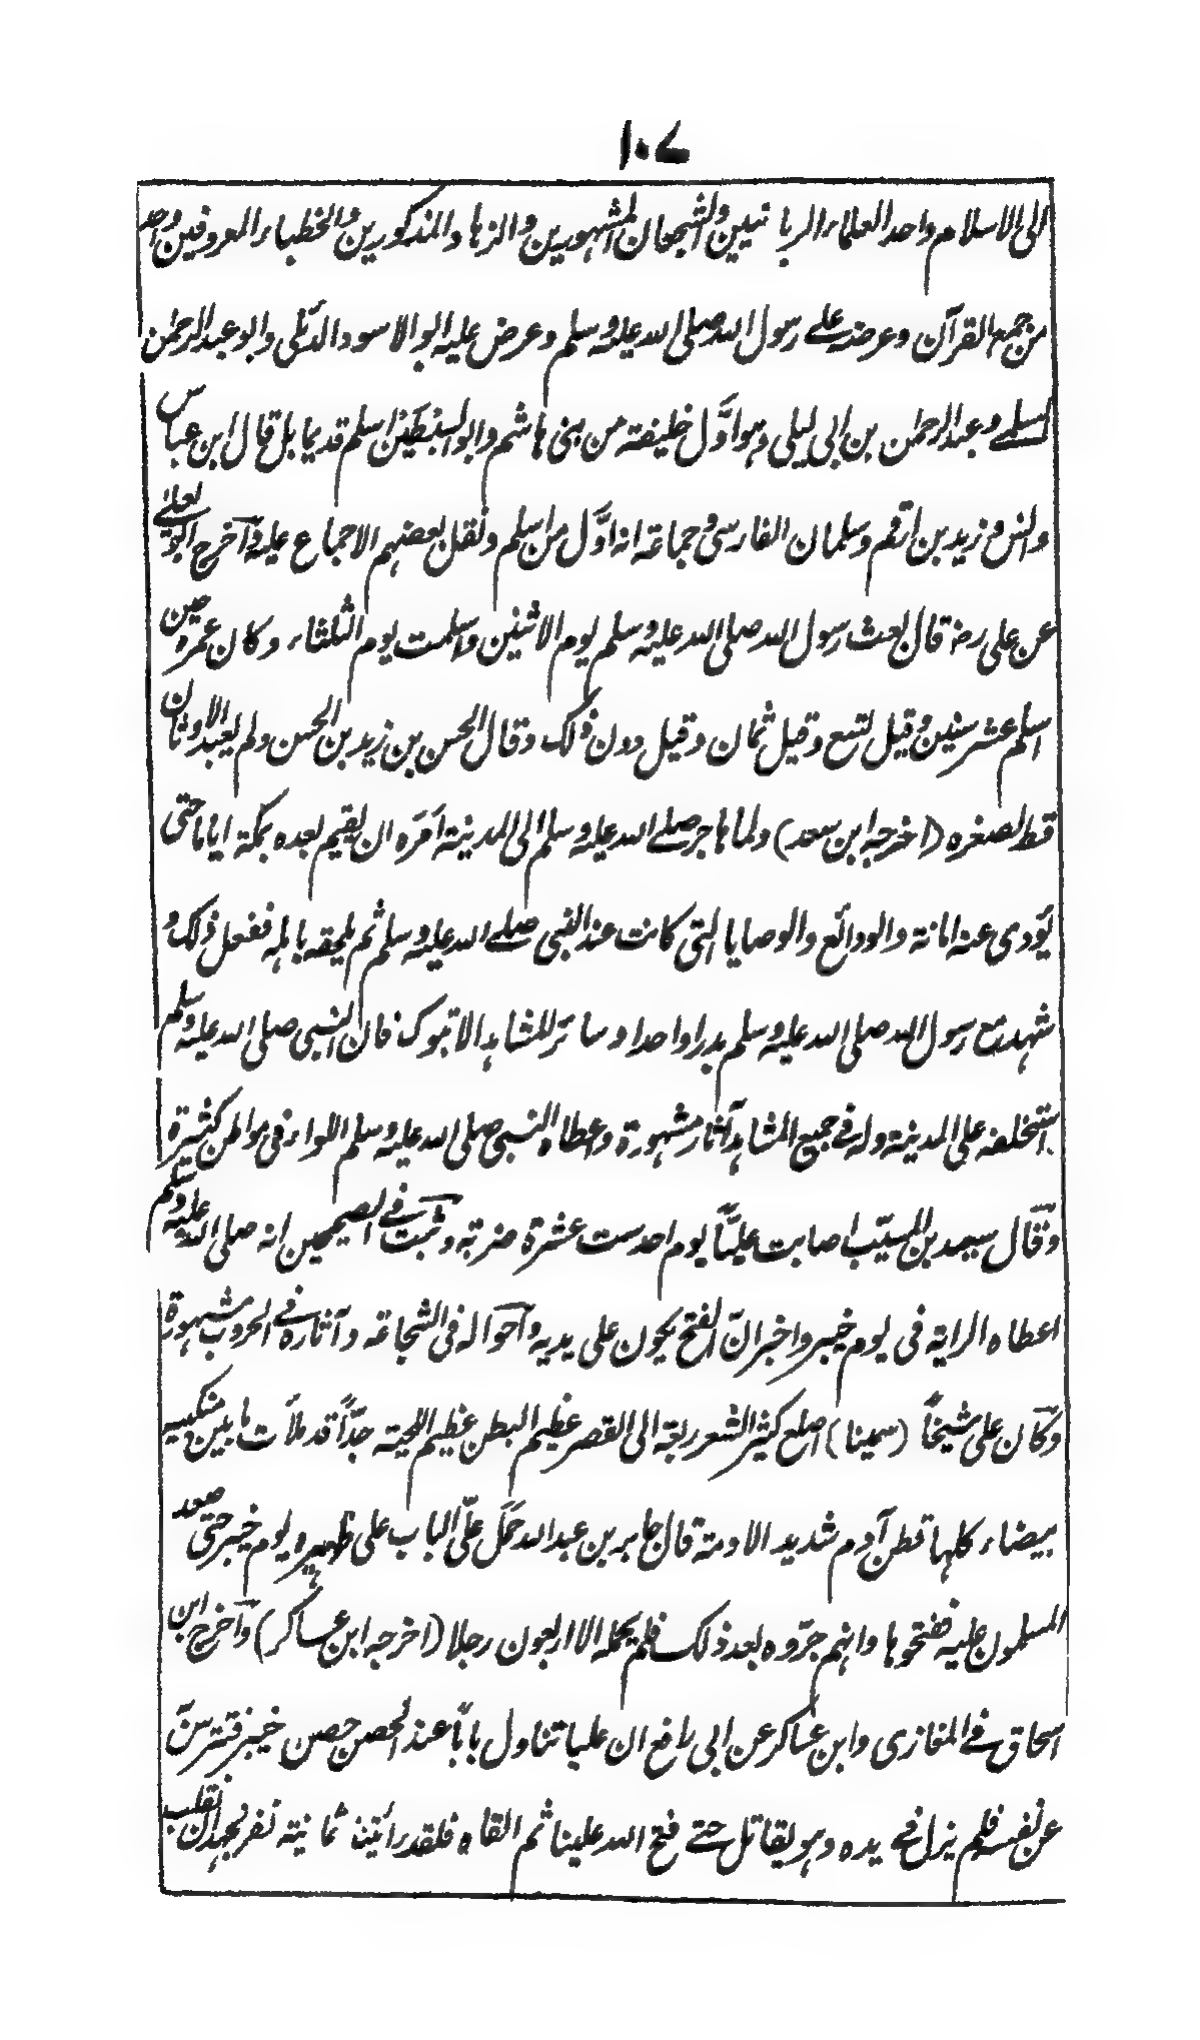 ١٠٧
الى الاسلام واحد العلماء الربانيين والشجعان المشهورين والزهاد والمذكورين والخطباء المعروفين واحد
من جمع القرآن وعرضه على رسول الله صلى الله عليه وسلم وعرض عليه ابو الاسود الدئلى وابو عبد الرحمٰن
السلمے وعبد الرحمٰن بن ابى ليلى وهو اوّل خليفته من بنى هاشم وابو السبطين اسلم قديما بل قال ابن عباس
وانس وزيد بن ارقم وسلمان الفارسى وجماعة انه اوّل من اسلم ونقل بعضهم الاجماع عليه وآخرج ابو يعلى
عن على رضه قال بعث رسول الله صلى الله عليه وسلم يوم الاثنين واسلمت يوم الثلثاء وكان عمره حين
اسلم عشر سنين وقيل تسع وقيل ثمان وقيل دون ذلك وقال الحسن بن زيد بن الحسن ولم يعبد الاوثان
قط لصغره (اخرجه ابن سعد) ولما هاجر صلے الله عليه وسلم الى المدينة اَمَرَه ان يقيم بعده بمكة اياما حتى
يؤدى عنه امانة والودائع والوصايا التى كانت عند النبى صلے الله عليه وسلم ثم يلحقه باهله ففعل ذلك و
شهد مع رسول الله صلى الله عليه وسلم بدرا واحدا وسائر المشاهد الا تبوك فان النبى صلى الله عليه وسلم
استخلفه على المدينة وله فے جميع المشاهد آثار مشهورة واعطاه النبى صلى الله عليه وسلم اللواء فى مواطن كثيرة
وقال سعيد بن المسيّب اصابت عليًّا يوم احد ست عشرة ضربة وثبت فے الصحيحين انه صلى الله عليه وسلم
اعطاه الراية فى يوم خيبر واخبر انّ الفتح يكون على يديه وآحواله فى الشجاعة وآثاره فے الحروب مشهورة
وكان على شيخاً (سمينا) اصلع كثير الشعر ربعة الى القصر عظيم البطن عظيم اللحية جدّاً قد ملأت ما بين منكبيه
بيضاء كلها قطن آدم شديد الادمة قال جابر بن عبد الله حَمَلَ علىّ الباب على ظهره يوم خيبر حتى صعد
المسلمون عليه ففتحوها وانهم جرّوه بعد ذلك فلم يحمله الا اربعون رجلا (اخرجه ابن عساكر) وآخرج ابن
اسحاق فے المغازى وابن عساكر عن ابى رافع ان عليا تناول باباً عند الحصن حصن خيبر فتترسّ
عن نفسه فلم يزل فے يده وهو يقاتل حتے فتح الله علينا ثم القاه فلقد رأيتنا ثمانية نفر نجهد ان نقلب